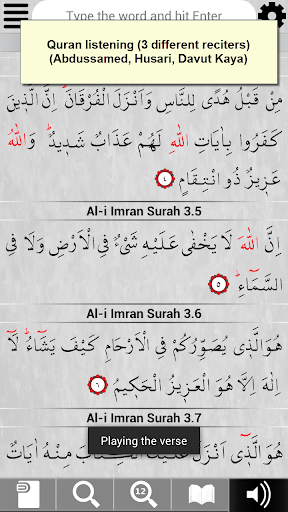 Type the word and hit Enter
Quran listening (3 different reciters)
(Abdussamed, Husari, Davut Kaya)
مِنْ قَبْلُ هُدًى لِلنَّاسِ وَاَنْزَلَ الْفُرْقَانَۜ اِنَّ الَّذ۪ينَ
كَفَرُوا بِاٰيَاتِ اللّٰهِ لَهُمْ عَذَابٌ شَد۪يدٌۜ وَاللّٰهُ
عَز۪يزٌ ذُو انْتِقَامٍ ٤
Al-i Imran Surah 3.5
اِنَّ اللّٰهَ لَا يَخْفٰى عَلَيْهِ شَيْءٌ فِي الْاَرْضِ وَلَا فِي
السَّمَٓاءِۜ ٥
Al-i Imran Surah 3.6
هُوَ الَّذ۪ي يُصَوِّرُكُمْ فِي الْاَرْحَامِ كَيْفَ يَشَٓاءُۜ لَٓا
اِلٰهَ اِلَّا هُوَ الْعَز۪يزُ الْحَك۪يمُ ٦
Al-i Imran Surah 3.7
هُوَ الَّذ۪ٓي اَنْزَلَ عَلَيْكَ الْكِتَابَ مِنْهُ اٰيَاتٌ
Playing the verse
12